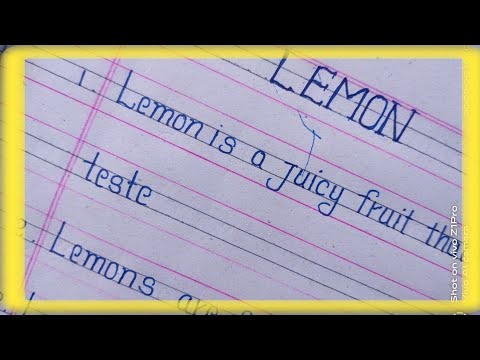 LEMON
1. Lemon is a juicy fruit
teste
2. Lemons are
Shot on vivo Z1Pro
vivo AI camera